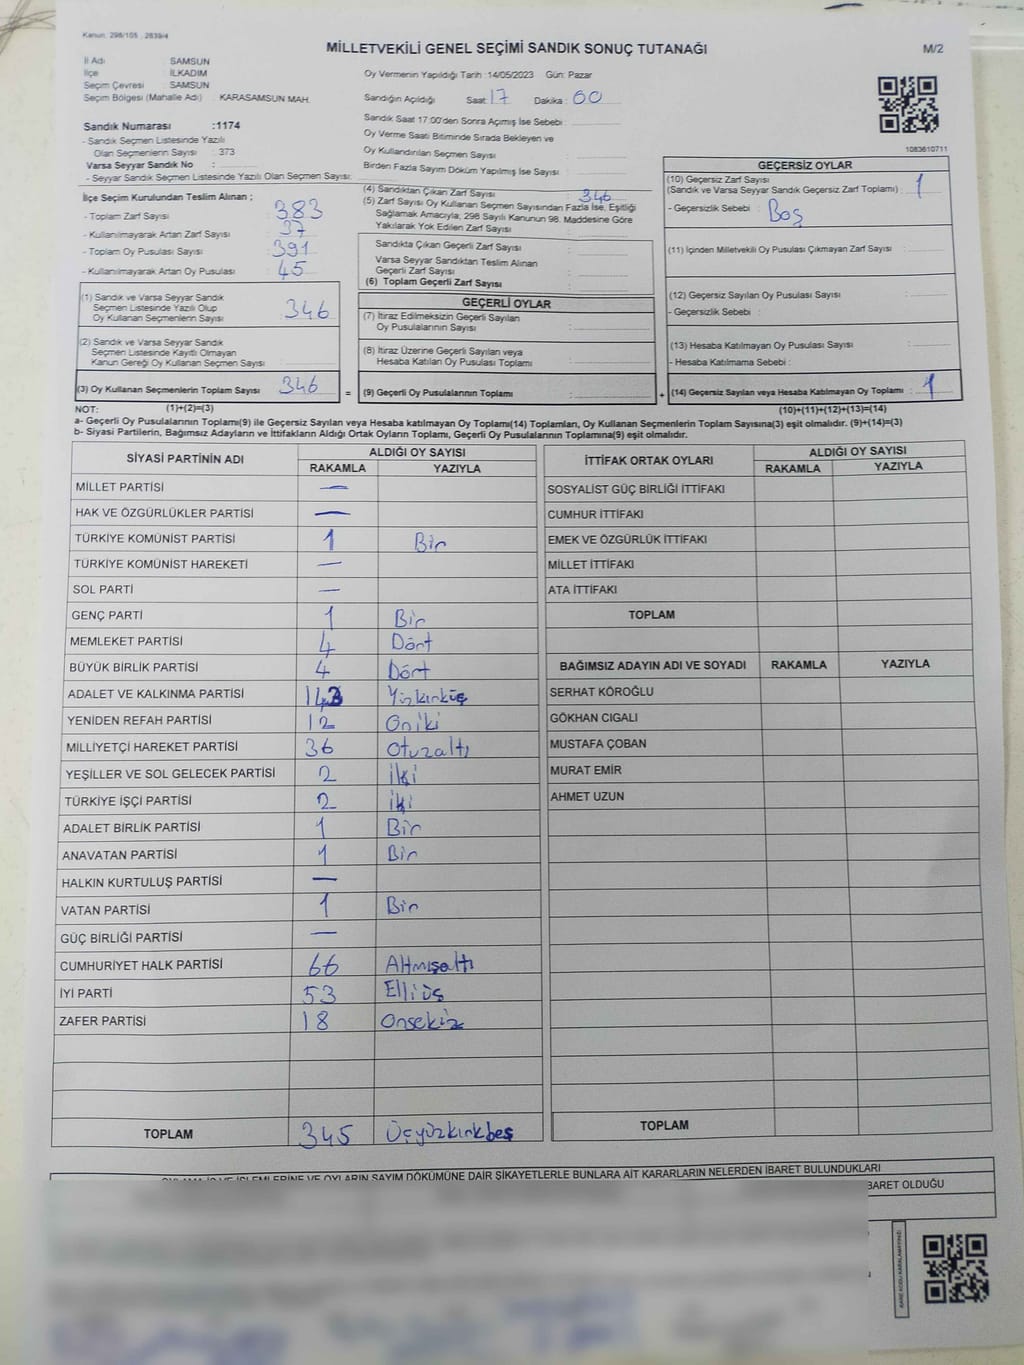 Kanun: 298/105 , 2839/4
MİLLETVEKİLİ GENEL SEÇİMİ SANDIK SONUÇ TUTANAĞI
M/2
İl Adı SAMSUN
İlçe İLKADIM
Seçim Çevresi SAMSUN
Seçim Bölgesi (Mahalle Adı) : KARASAMSUN MAH.
Oy Vermenin Yapıldığı Tarih :14/05/2023 Gün: Pazar
Sandığın Açıldığı Saat: 17 Dakika : 00
Sandık Saat 17:00'den Sonra Açımış İse Sebebi :
Oy Verme Saati Bitiminde Sırada Bekleyen ve
Oy Kullandırılan Seçmen Sayısı :
Birden Fazla Sayım Döküm Yapılmış İse Sayısı :
1083610711
Sandık Numarası :1174
- Sandık Seçmen Listesinde Yazılı
Olan Seçmenlerin Sayısı : 373
Varsa Seyyar Sandık No :
- Seyyar Sandık Seçmen Listesinde Yazılı Olan Seçmen Sayısı:
İlçe Seçim Kurulundan Teslim Alınan ;
- Toplam Zarf Sayısı : 383
- Kullanılmayarak Artan Zarf Sayısı : 37
- Toplam Oy Pusulası Sayısı : 391
- Kullanılmayarak Artan Oy Pusulası : 45
(1) Sandık ve Varsa Seyyar Sandık
Seçmen Listesinde Yazılı Olup
Oy Kullanan Seçmenlerin Sayısı : 346
(2) Sandık ve Varsa Seyyar Sandık
Seçmen Listesinde Kayıtlı Olmayan
Kanun Gereği Oy Kullanan Seçmen Sayısı :
(3) Oy Kullanan Seçmenlerin Toplam Sayısı : 346
(4) Sandıktan Çıkan Zarf Sayısı : 346
(5) Zarf Sayısı Oy Kullanan Seçmen Sayısından Fazla İse, Eşitliği
Sağlamak Amacıyla, 298 Sayılı Kanunun 98. Maddesine Göre
Yakılarak Yok Edilen Zarf Sayısı :
Sandıkta Çıkan Geçerli Zarf Sayısı :
Varsa Seyyar Sandıktan Teslim Alınan
Geçerli Zarf Sayısı :
(6) Toplam Geçerli Zarf Sayısı :
GEÇERLİ OYLAR
(7) İtiraz Edilmeksizin Geçerli Sayılan
Oy Pusulalarının Sayısı :
(8) İtiraz Üzerine Geçerli Sayılan veya
Hesaba Katılan Oy Pusulası Toplamı :
= (9) Geçerli Oy Pusulalarının Toplamı :
GEÇERSİZ OYLAR
(10) Geçersiz Zarf Sayısı
(Sandık ve Varsa Seyyar Sandık Geçersiz Zarf Toplamı) : 1
- Geçersizlik Sebebi : Boş
(11) İçinden Milletvekili Oy Pusulası Çıkmayan Zarf Sayısı :
(12) Geçersiz Sayılan Oy Pusulası Sayısı :
- Geçersizlik Sebebi :
(13) Hesaba Katılmayan Oy Pusulası Sayısı :
- Hesaba Katılmama Sebebi :
+ (14) Geçersiz Sayılan veya Hesaba Katılmayan Oy Toplamı : 1
NOT: (1)+(2)=(3)
(10)+(11)+(12)+(13)=(14)
a- Geçerli Oy Pusulalarının Toplamı(9) ile Geçersiz Sayılan veya Hesaba katılmayan Oy Toplamı(14) Toplamları, Oy Kullanan Seçmenlerin Toplam Sayısına(3) eşit olmalıdır. (9)+(14)=(3)
b- Siyasi Partilerin, Bağımsız Adayların ve İttifakların Aldığı Ortak Oyların Toplamı, Geçerli Oy Pusulalarının Toplamına(9) eşit olmalıdır.
SİYASİ PARTİNİN ADI ALDIĞI OY SAYISI
RAKAMLA YAZIYLA
MİLLET PARTİSİ —
HAK VE ÖZGÜRLÜKLER PARTİSİ —
TÜRKİYE KOMÜNİST PARTİSİ 1 Bir
TÜRKİYE KOMÜNİST HAREKETİ —
SOL PARTİ —
GENÇ PARTİ 1 Bir
MEMLEKET PARTİSİ 4 Dört
BÜYÜK BİRLİK PARTİSİ 4 Dört
ADALET VE KALKINMA PARTİSİ 143 Yüzkırküç
YENİDEN REFAH PARTİSİ 12 Oniki
MİLLİYETÇİ HAREKET PARTİSİ 36 Otuzaltı
YEŞİLLER VE SOL GELECEK PARTİSİ 2 İki
TÜRKİYE İŞÇİ PARTİSİ 2 İki
ADALET BİRLİK PARTİSİ 1 Bir
ANAVATAN PARTİSİ 1 Bir
HALKIN KURTULUŞ PARTİSİ —
VATAN PARTİSİ 1 Bir
GÜÇ BİRLİĞİ PARTİSİ —
CUMHURİYET HALK PARTİSİ 66 Altmışaltı
İYİ PARTİ 53 Elliüç
ZAFER PARTİSİ 18 Onsekiz
TOPLAM 345 Üçyüzkırkbeş
İTTİFAK ORTAK OYLARI ALDIĞI OY SAYISI
RAKAMLA YAZIYLA
SOSYALİST GÜÇ BİRLİĞİ İTTİFAKI
CUMHUR İTTİFAKI
EMEK VE ÖZGÜRLÜK İTTİFAKI
MİLLET İTTİFAKI
ATA İTTİFAKI
TOPLAM
BAĞIMSIZ ADAYIN ADI VE SOYADI RAKAMLA YAZIYLA
SERHAT KÖROĞLU
GÖKHAN CIGALI
MUSTAFA ÇOBAN
MURAT EMİR
AHMET UZUN
TOPLAM
OYLAMA İŞ VE İŞLEMLERİNE VE OYLARIN SAYIM DÖKÜMÜNE DAİR ŞİKAYETLERLE BUNLARA AİT KARARLARIN NELERDEN İBARET BULUNDUKLARI
BARET OLDUĞU